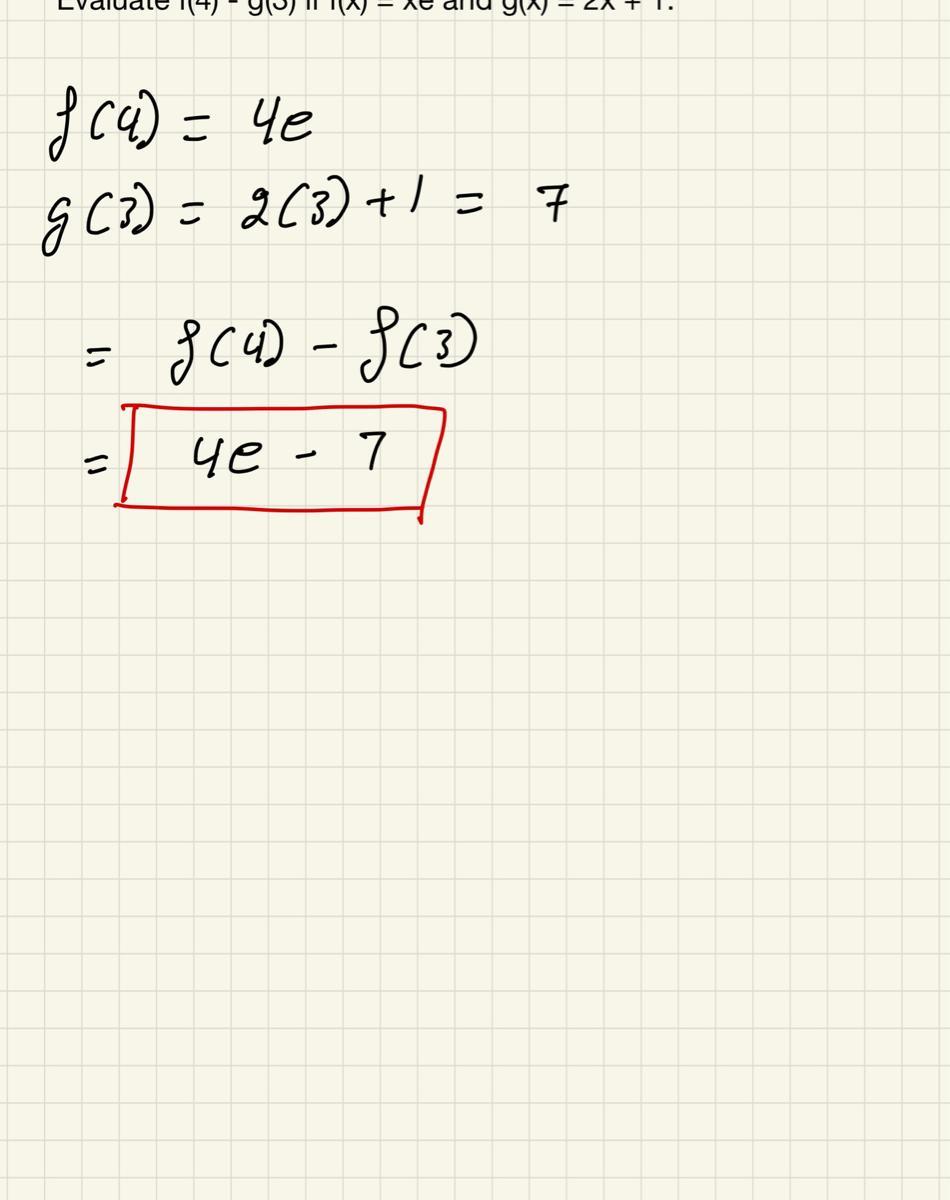 Evaluate f(4) - g(3) if f(x) = xe and g(x) = 2x + 1.
f(4) = 4e
g(3) = 2(3) + 1 = 7
= f(4) - f(3)
= 4e - 7